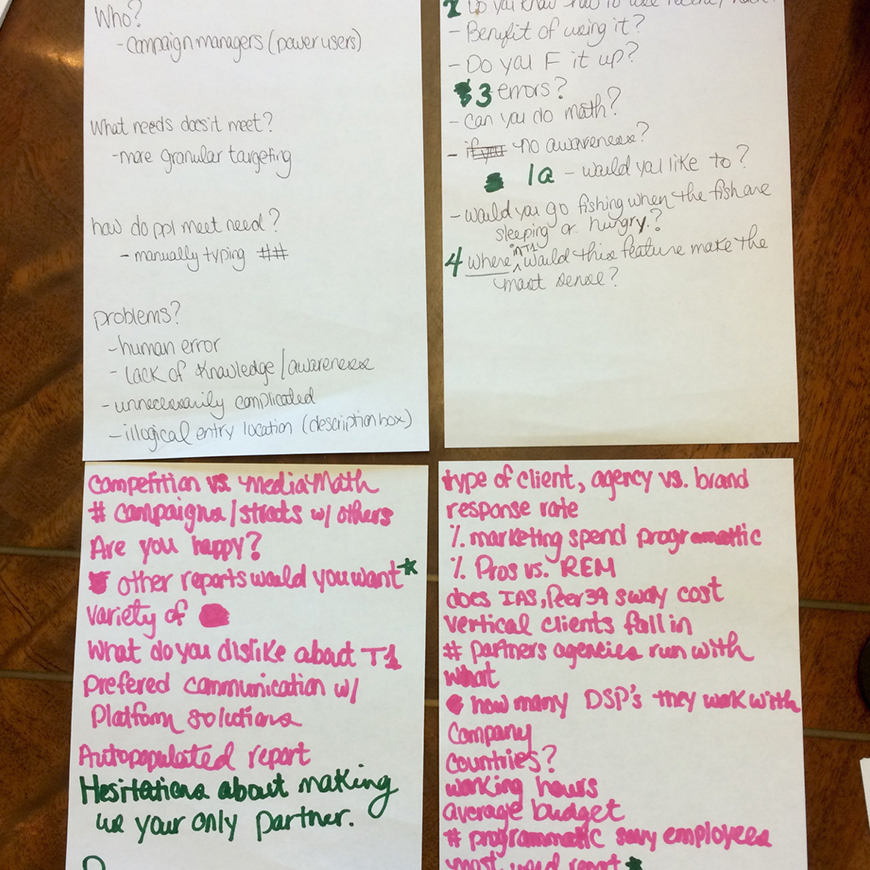 Who?
- campaign managers (power users)
What needs does it meet?
- more granular targeting
how do ppl meet need?
- manually typing ##
problems?
- human error
- lack of knowledge/awareness
- unnecessarily complicated
- illogical entry location (description box)
you know how to use
- Benefit of using it?
- Do you F it up?
3 errors?
- can you do math?
- if you no awareness?
1a - would you like to?
- would you go fishing when the fish are
sleeping or hungry?
4 where in T1 would this feature make the
most sense?
Competition vs. MediaMath
# campaigns/strats w/ others
Are you happy?
other reports would you want*
variety of
What do you dislike about T1
Prefered communication w/
Platform solutions
Autopopulated report
Hesitations about making
us your only partner.
type of client, agency vs. brand
response rate
% marketing spend programattic
% Pros vs. REM
does IAS, Peer39 sway cost
vertical clients fall in
# partners agencies run with
what
how many DSP's they work with
Company
countries?
working hours
average budget
# programmatic savy employees
most used report*